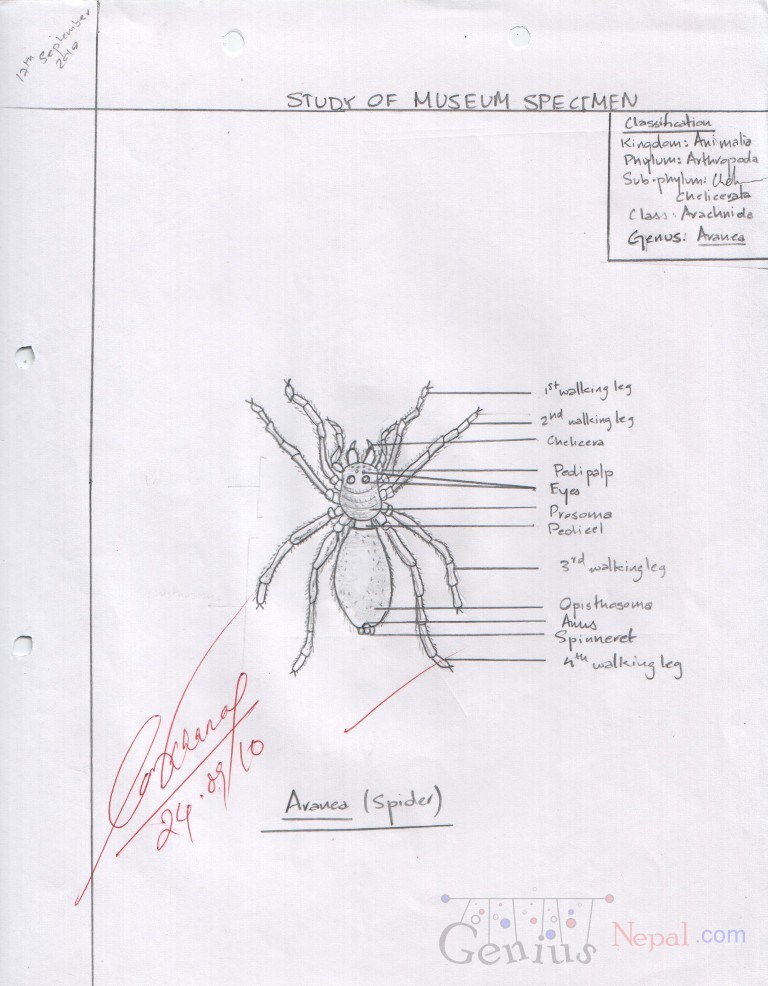 12th September
2010
STUDY OF MUSEUM SPECIMEN
Classification
Kingdom: Animalia
Phylum: Arthropoda
Sub-phylum:
Chelicerata
Class: Arachnida
Genus: Aranea
1st walking leg
2nd walking leg
Chelicera
Pedipalp
Eyes
Prosoma
Pedicel
3rd walking leg
Opisthosoma
Anus
Spinneret
4th walking leg
24.09/10
Aranea (Spider)
Genius Nepal.com